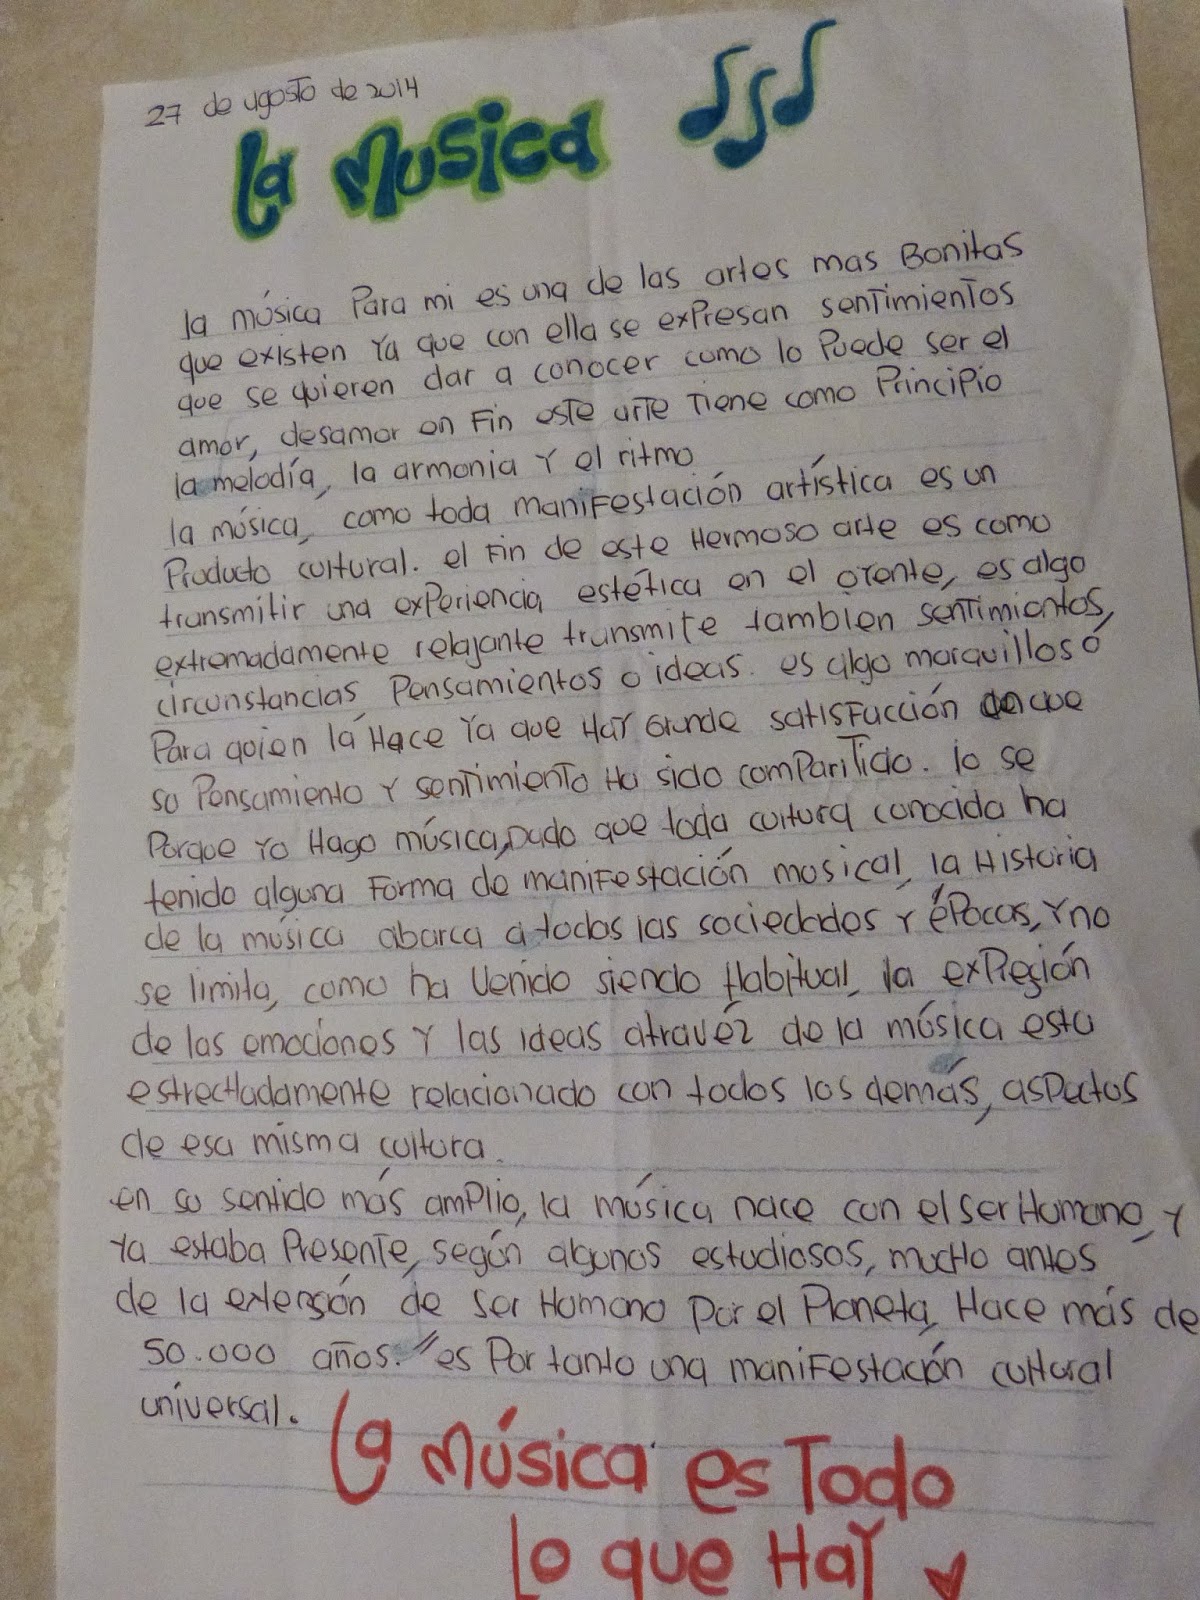 27 de agosto de 2014
La Musica
la música Para mi es una de las artes mas Bonitas
que existen Ya que con ella se expresan sentimientos
que se quieren dar a conocer como lo Puede ser el
amor, desamor en Fin este arte Tiene como Principio
la melodía, la armonia Y el ritmo
la música, como toda manifestación artística es un
Producto cultural. el Fin de este Hermoso arte es como
transmitir una experiencia estética en el oyente, es algo
extremadamente relajante transmite tambien sentimientos,
circunstancias, Pensamientos o ideas. es algo maraquillosó
Para quien lá Hace Ya que HaY Grande satisfacción de que
su Pensamiento Y sentimiento Ha sido compartido. lo se
Porque Yo Hago música, Dado que toda cultura conocida ha
tenido alguna Forma de manifestación musical, la Historia
de la música abarca a todas las sociedades Y épocas, Y no
se limita, como ha Venido siendo Habitual, la expreción
de las emociones Y las ideas atravéz de la música esta
estrechadamente relacionado con todos los demás, aspectos
de esa misma cultura.
en su sentido más amplio, la música nace con el ser Humano, Y
Ya estaba Presente, según algunos estudiosos, mucho antes
de la extensión de ser Humano por el Planeta, Hace más de
50.000 años. "es Por tanto una manifestación cultural
universal.
La Música es Todo
Lo que HaY